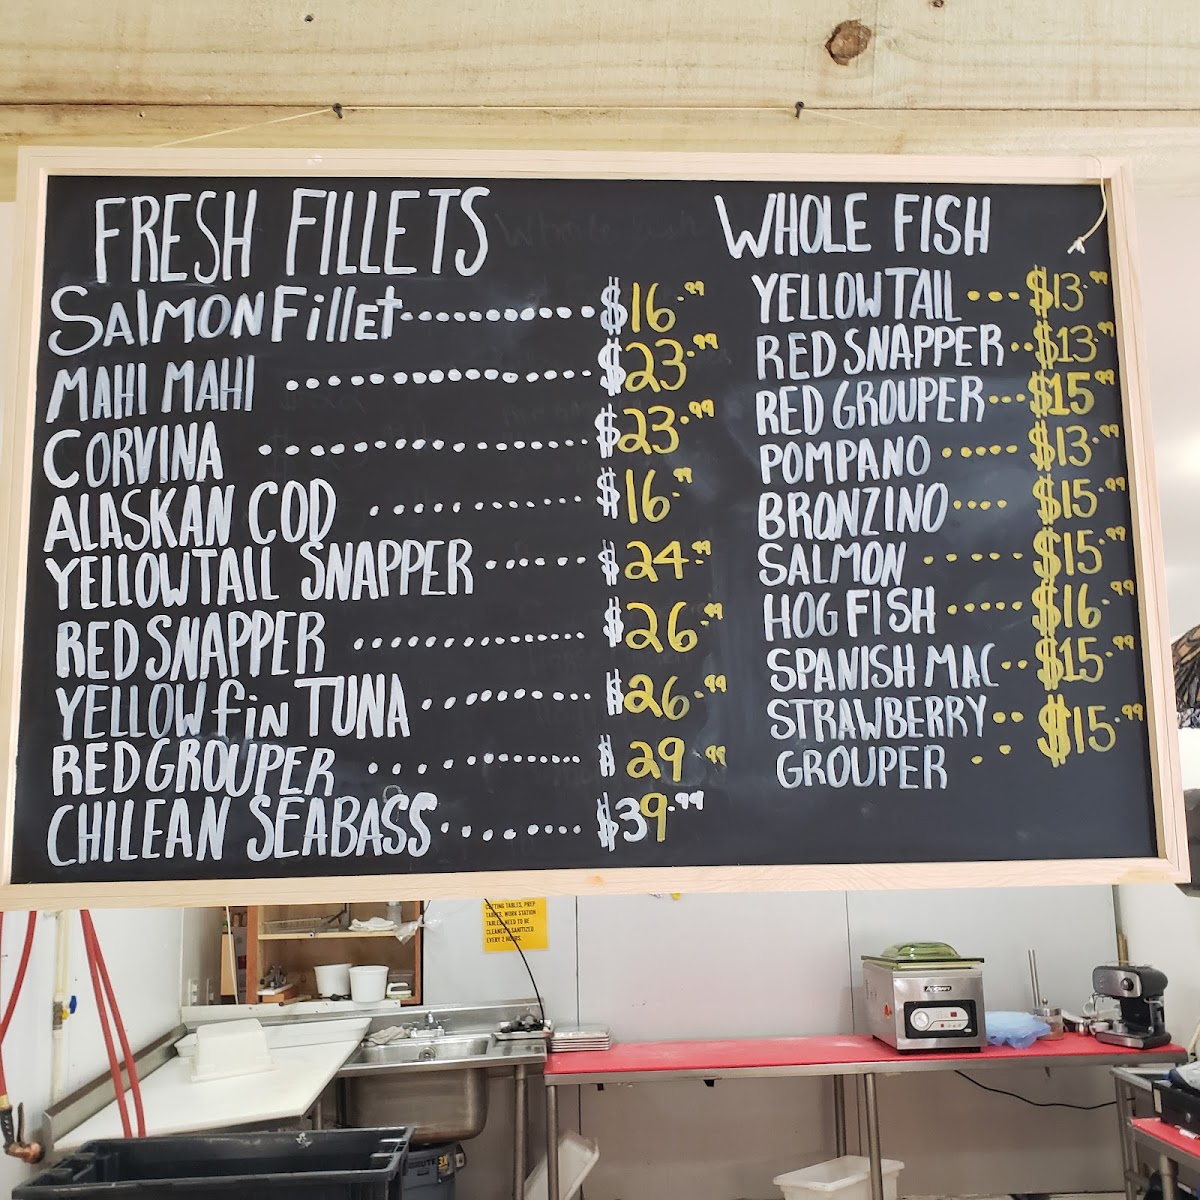 FRESH FILLETS
SALMON Fillet............$16.99
MAHI MAHI ....................$23.99
CORVINA ....................$23.99
ALASKAN COD ............$16.99
YELLOWTAIL SNAPPER ......$24.99
RED SNAPPER ..............$26.99
YELLOWfin TUNA .........$26.99
RED GROUPER ...........$29.99
CHILEAN SEABASS.......$39.99
WHOLE FISH
YELLOWTAIL ...$13.99
RED SNAPPER..$13.99
RED GROUPER...$15.99
POMPANO .....$13.99
BRONZINO....$15.99
SALMON ....$15.99
HOG FISH .....$16.99
SPANISH MAC..$15.99
STRAWBERRY..$15.99
GROUPER ..
CUTTING TABLES, PREP
TABLES, WORK STATION
TABLES NEED TO BE
CLEANED & SANITIZED
EVERY 2 HOURS.